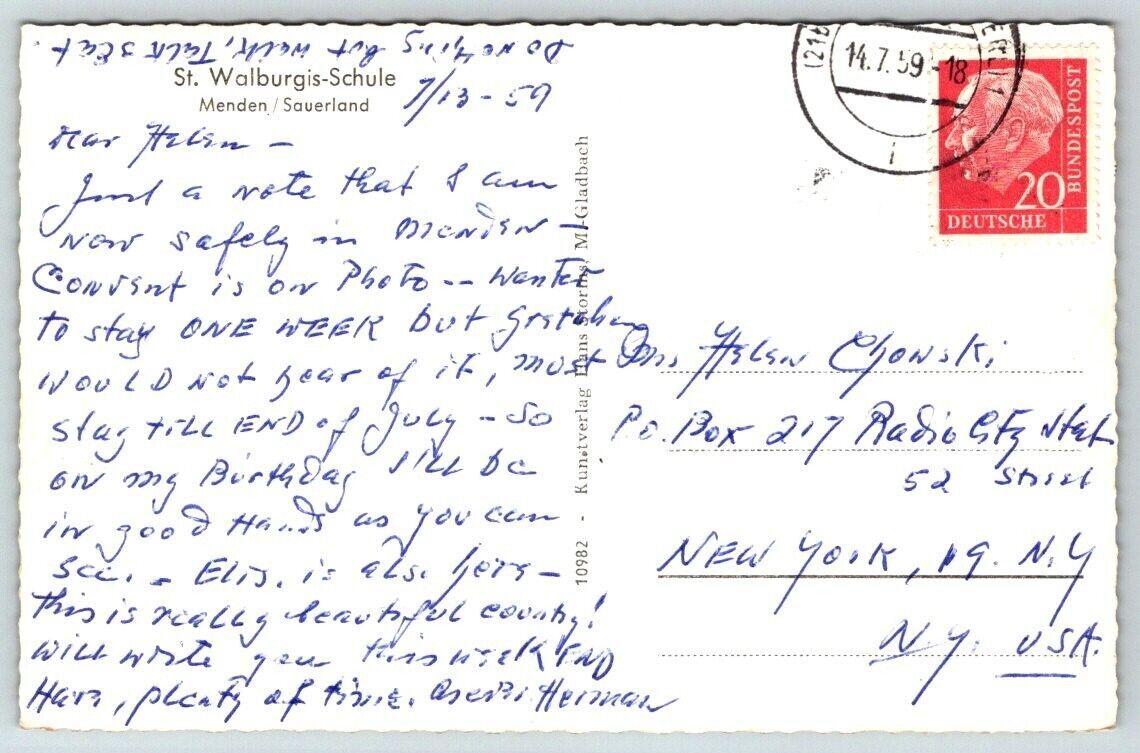 Do nothing but walk, talk & eat
St. Walburgis-Schule
Menden/Sauerland
7/13-59
Dear Helen -
Just a note that I am
now safely in Menden -
Convent is on Photo -- Wanted
to stay ONE WEEK but Gretchen
WOULD not hear of it, must
stay till END of July - So
on my Birthday I'LL be
in good Hands as you can
see. - Elis. is also here -
this is really beautiful country!
Will write you this week END
Have plenty of time. Herman
10982 - Kunstverlag Hans Storms, M.-Gladbach
(21b
14.7.59-18
DEUTSCHE
BUNDESPOST
20
Helen Chowski
P.O. Box 217 Radio City Stat
52 Street
NEW York, 19. N.Y
N.Y. USA.